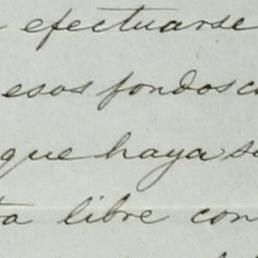 efectuarse
esos fondos
que haya
libre con